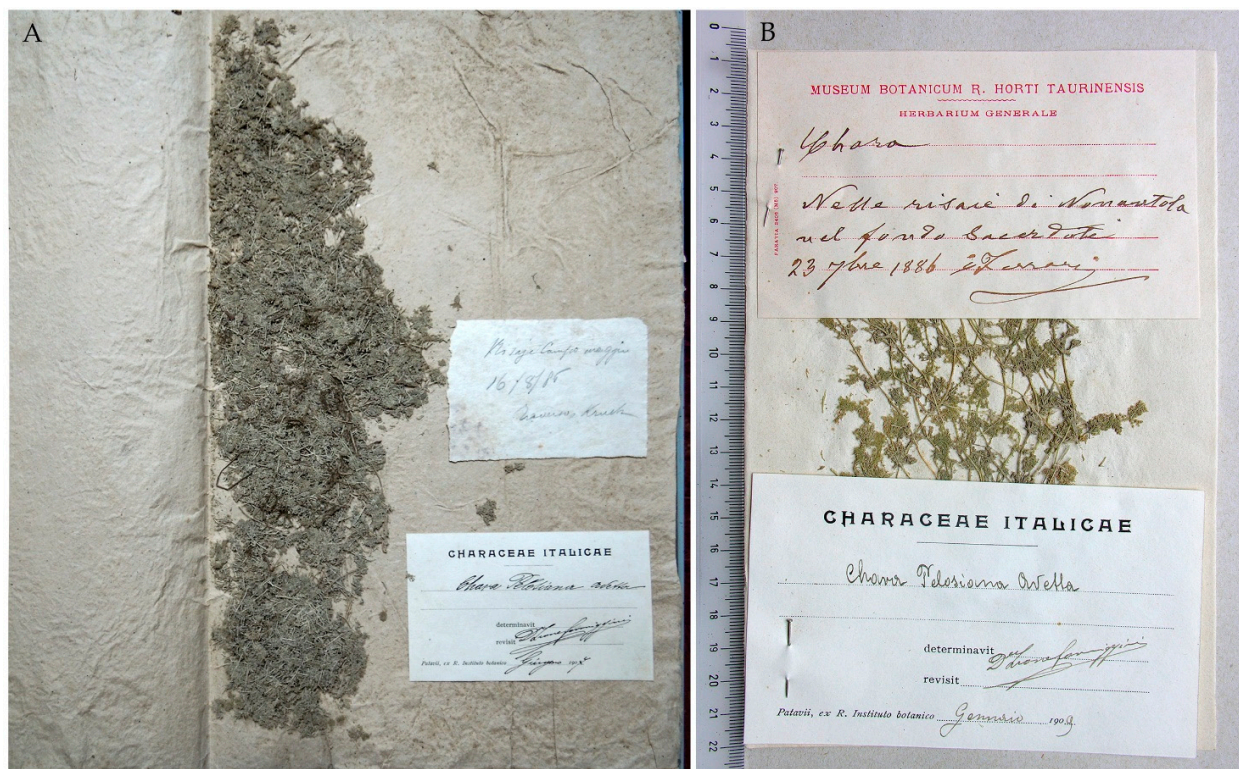 A
Risaje Campo maggior
16/8/86
CHARACEAE ITALICAE
Chara Pelosiana Avetta
determinavit
revisit
Patavii, ex R. Instituto botanico Giugno 190
B
0
1
2
3
4
5
6
7
8
9
10
11
12
13
14
15
16
17
18
19
20
21
22
MUSEUM BOTANICUM R. HORTI TAURINENSIS
HERBARIUM GENERALE
Chara
Nelle risaie di Nonantola
nel fondo Sacerdoti
23 7bre 1886 Ferrari
CHARACEAE ITALICAE
Chara Pelosiana Avetta
determinavit
revisit
Patavii, ex R. Instituto botanico Gennaio 1909